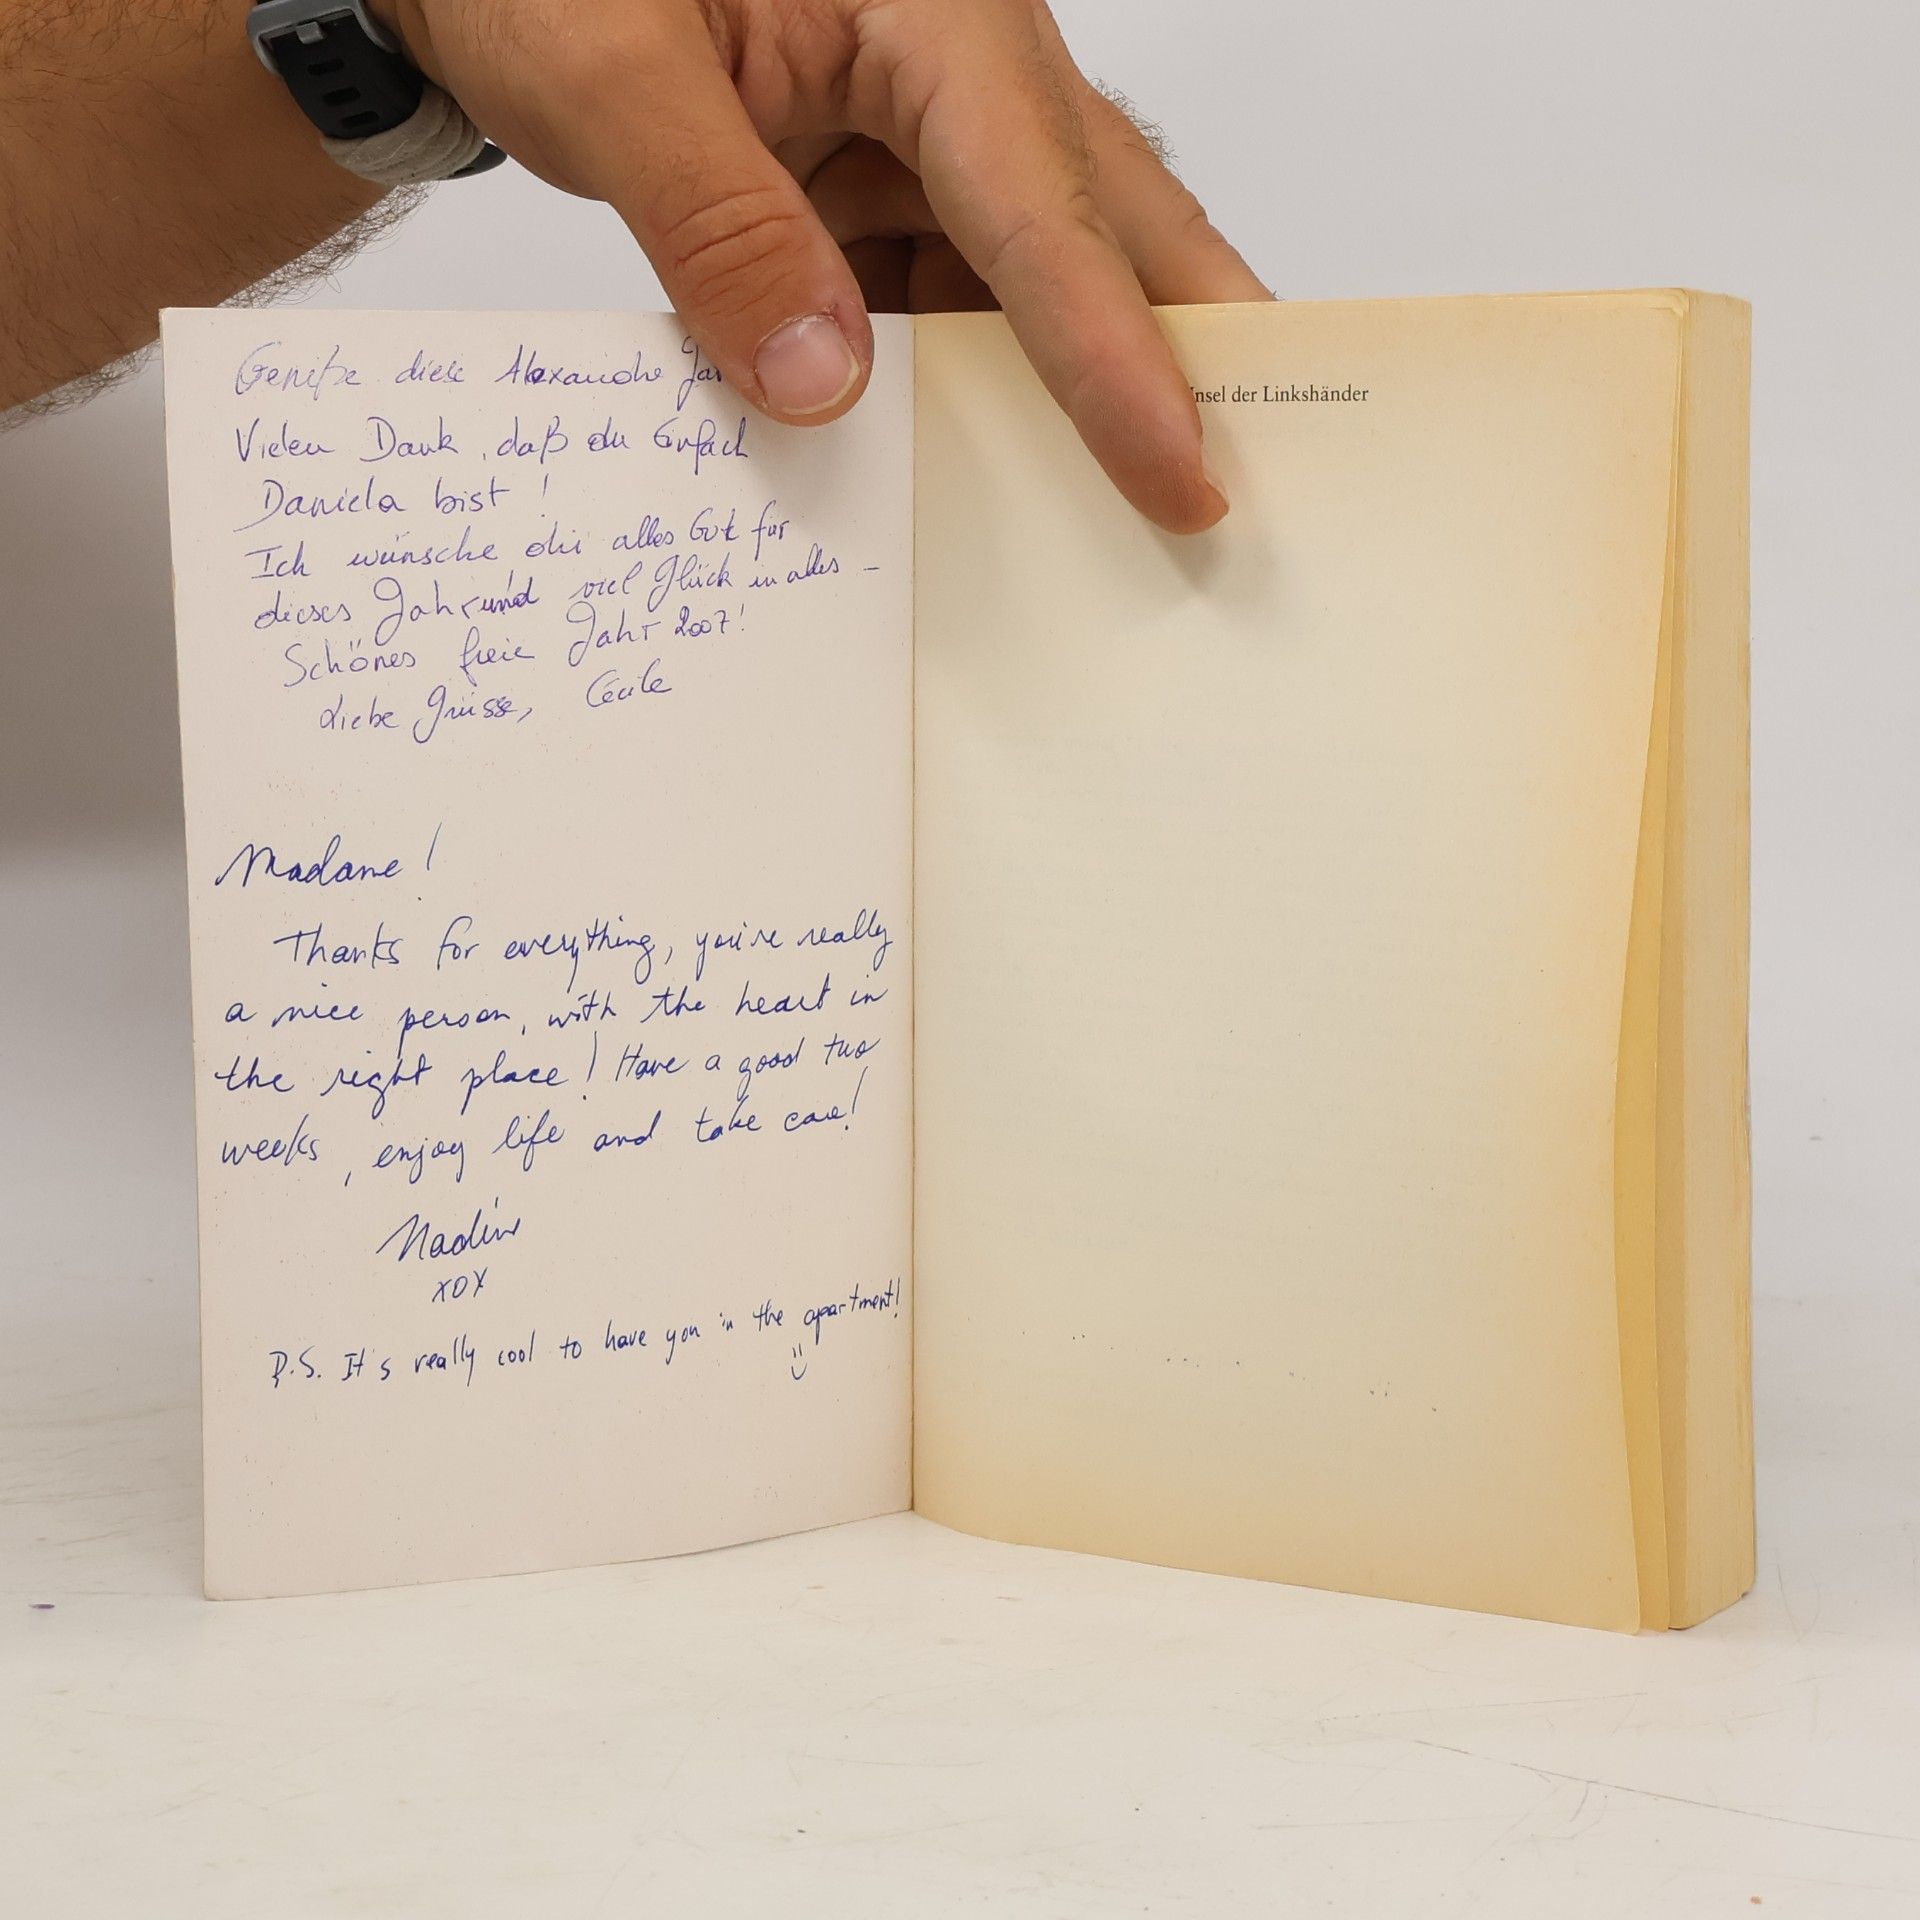 Genieße diese Alexandre Jar
Vielen Dank, daß du Einfach
Daniela bist !
Ich wünsche dir alles Gute für
dieses Jahr und viel Glück in alles -
Schönes freie Jahr 2007!
Liebe Grüsse, Cécile
Madame !
Thanks for everything, you're really
a nice person, with the heart in
the right place! Have a good two
weeks, enjoy life and take care!
Nadine
XOX
P.S. It's really cool to have you in the apartment!
Insel der Linkshänder